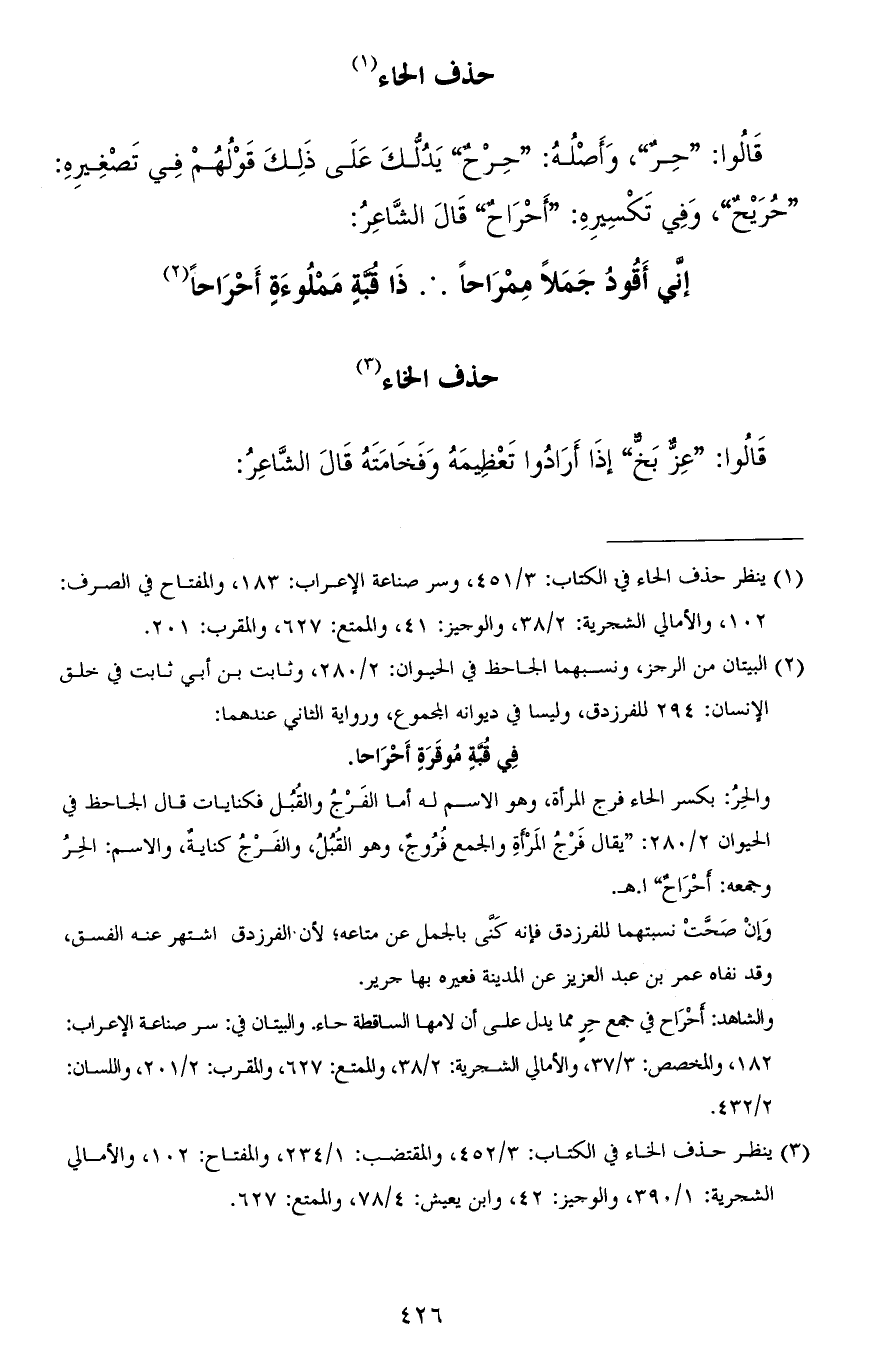 حذف الحاء(١)
قَالُوا: ”حِـرٌ“، وَأَصْلُـهُ: ”حِـرْحٌ“ يَدُلُّـكَ عَلَـى ذَلِـكَ قَوْلُهُـمْ فِـي تَصْغِـيرِهِ:
”حُرَيْحٌ“، وَفِي تَكْسِيرِهِ: ”أَحْرَاحٌ“ قَالَ الشَّاعِرُ:
إِنَّي أَقُودُ جَمَلاً مِمْرَاحاً .٠. ذَا قُبَّةٍ مَمْلُوءَةٍ أَحْرَاحاً(٢)
حذف الخاء(٣)
قَالُوا: ”عِزٌّ بَخٌّ“ إِذَا أَرَادُوا تَعْظِيمَهُ وَفَخَامَتَهُ قَالَ الشَّاعِرُ:
(١) ينظر حذف الحاء في الكتاب: ٤٥١/٣، وسر صناعة الإعـراب: ١٨٣، والمفتـاح في الصـرف:
١٠٢، والأمالي الشجرية: ٣٨/٢، والوجيز: ٤١، والممتع: ٦٢٧، والمقرب: ٢٠١.
(٢) البيتان من الرجز، ونسـبهما الجـاحظ في الحيـوان: ٢٨٠/٢، وثـابت بـن أبـي ثـابت في خلـق
الإنسان: ٢٩٤ للفرزدق، وليسا في ديوانه المجموع، ورواية الثاني عندهما:
فِي قُبَّةٍ مُوقَرَةٍ أَحْرَاحا.
والحِرُ: بكسر الحاء فرج المرأة، وهو الاسـم لـه أمـا الفَـرْجُ والقُبُـل فكنايـات قـال الجـاحظ في
الحيوان ٢٨٠/٢: ”يقال فَرْجُ المَرْأَةِ والجمع فُرُوجٌ، وهو القُبُلُ، والفَـرْجُ كنايـةٌ، والاسـم: الحِـرُ
وجمعه: أَحْرَاحٌ“ ا.هـ.
وَإِنْ صَحَّتْ نسبتهما للفرزدق فإنه كَنَّى بالجمل عن متاعه؛ لأن الفرزدق اشـتهر عنـه الفسـق،
وقد نفاه عمر بن عبد العزيز عن المدينة فعيره بها جرير.
والشاهد: أَحْرَاح في جمع حِرٍ مما يدل علـى أن لامهـا السـاقطة حـاء. والبيتـان في: سـر صناعـة الإعـراب:
١٨٢، والمخصص: ٣٧/٣، والأمالي الشـجرية: ٣٨/٢، والممتـع: ٦٢٧، والمقـرب: ٢٠١/٢، واللسان:
٤٣٢/٢.
(٣) ينظـر حـذف الخـاء في الكتـاب: ٤٥٢/٣، والمقتضـب: ٢٣٤/١، والمفتـاح: ١٠٢، والأمـالي
الشجرية: ٣٩٠/١، والوجيز: ٤٢، وابن يعيش: ٧٨/٤، والممتع: ٦٢٧.
٤٢٦